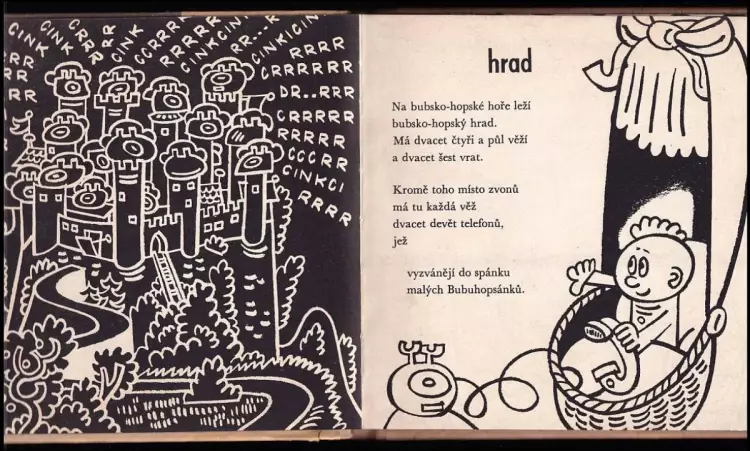 CINK
CINK
CRRR
RRR
CINK
CCRRRR
RRRRR
CINKCINK
RR...R
CINKICINK
RRRR
CRRRRRR
DR..RRR
CRRRRR
RRRRR
CCCRR
CINKCI
RRRR
RRR
RR
RR
hrad
Na bubsko-hopské hoře leží
bubsko-hopský hrad.
Má dvacet čtyři a půl věží
a dvacet šest vrat.
Kromě toho místo zvonů
má tu každá věž
dvacet devět telefonů,
jež
vyzvánějí do spánku
malých Bubuhopsánků.